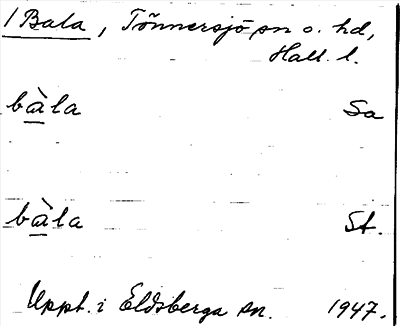 / Bala, Tönnersjö sn o. hd,
Hall. l.
bàla Sa
bàla St.
Uppt. i Eldsberga sn. 1947.